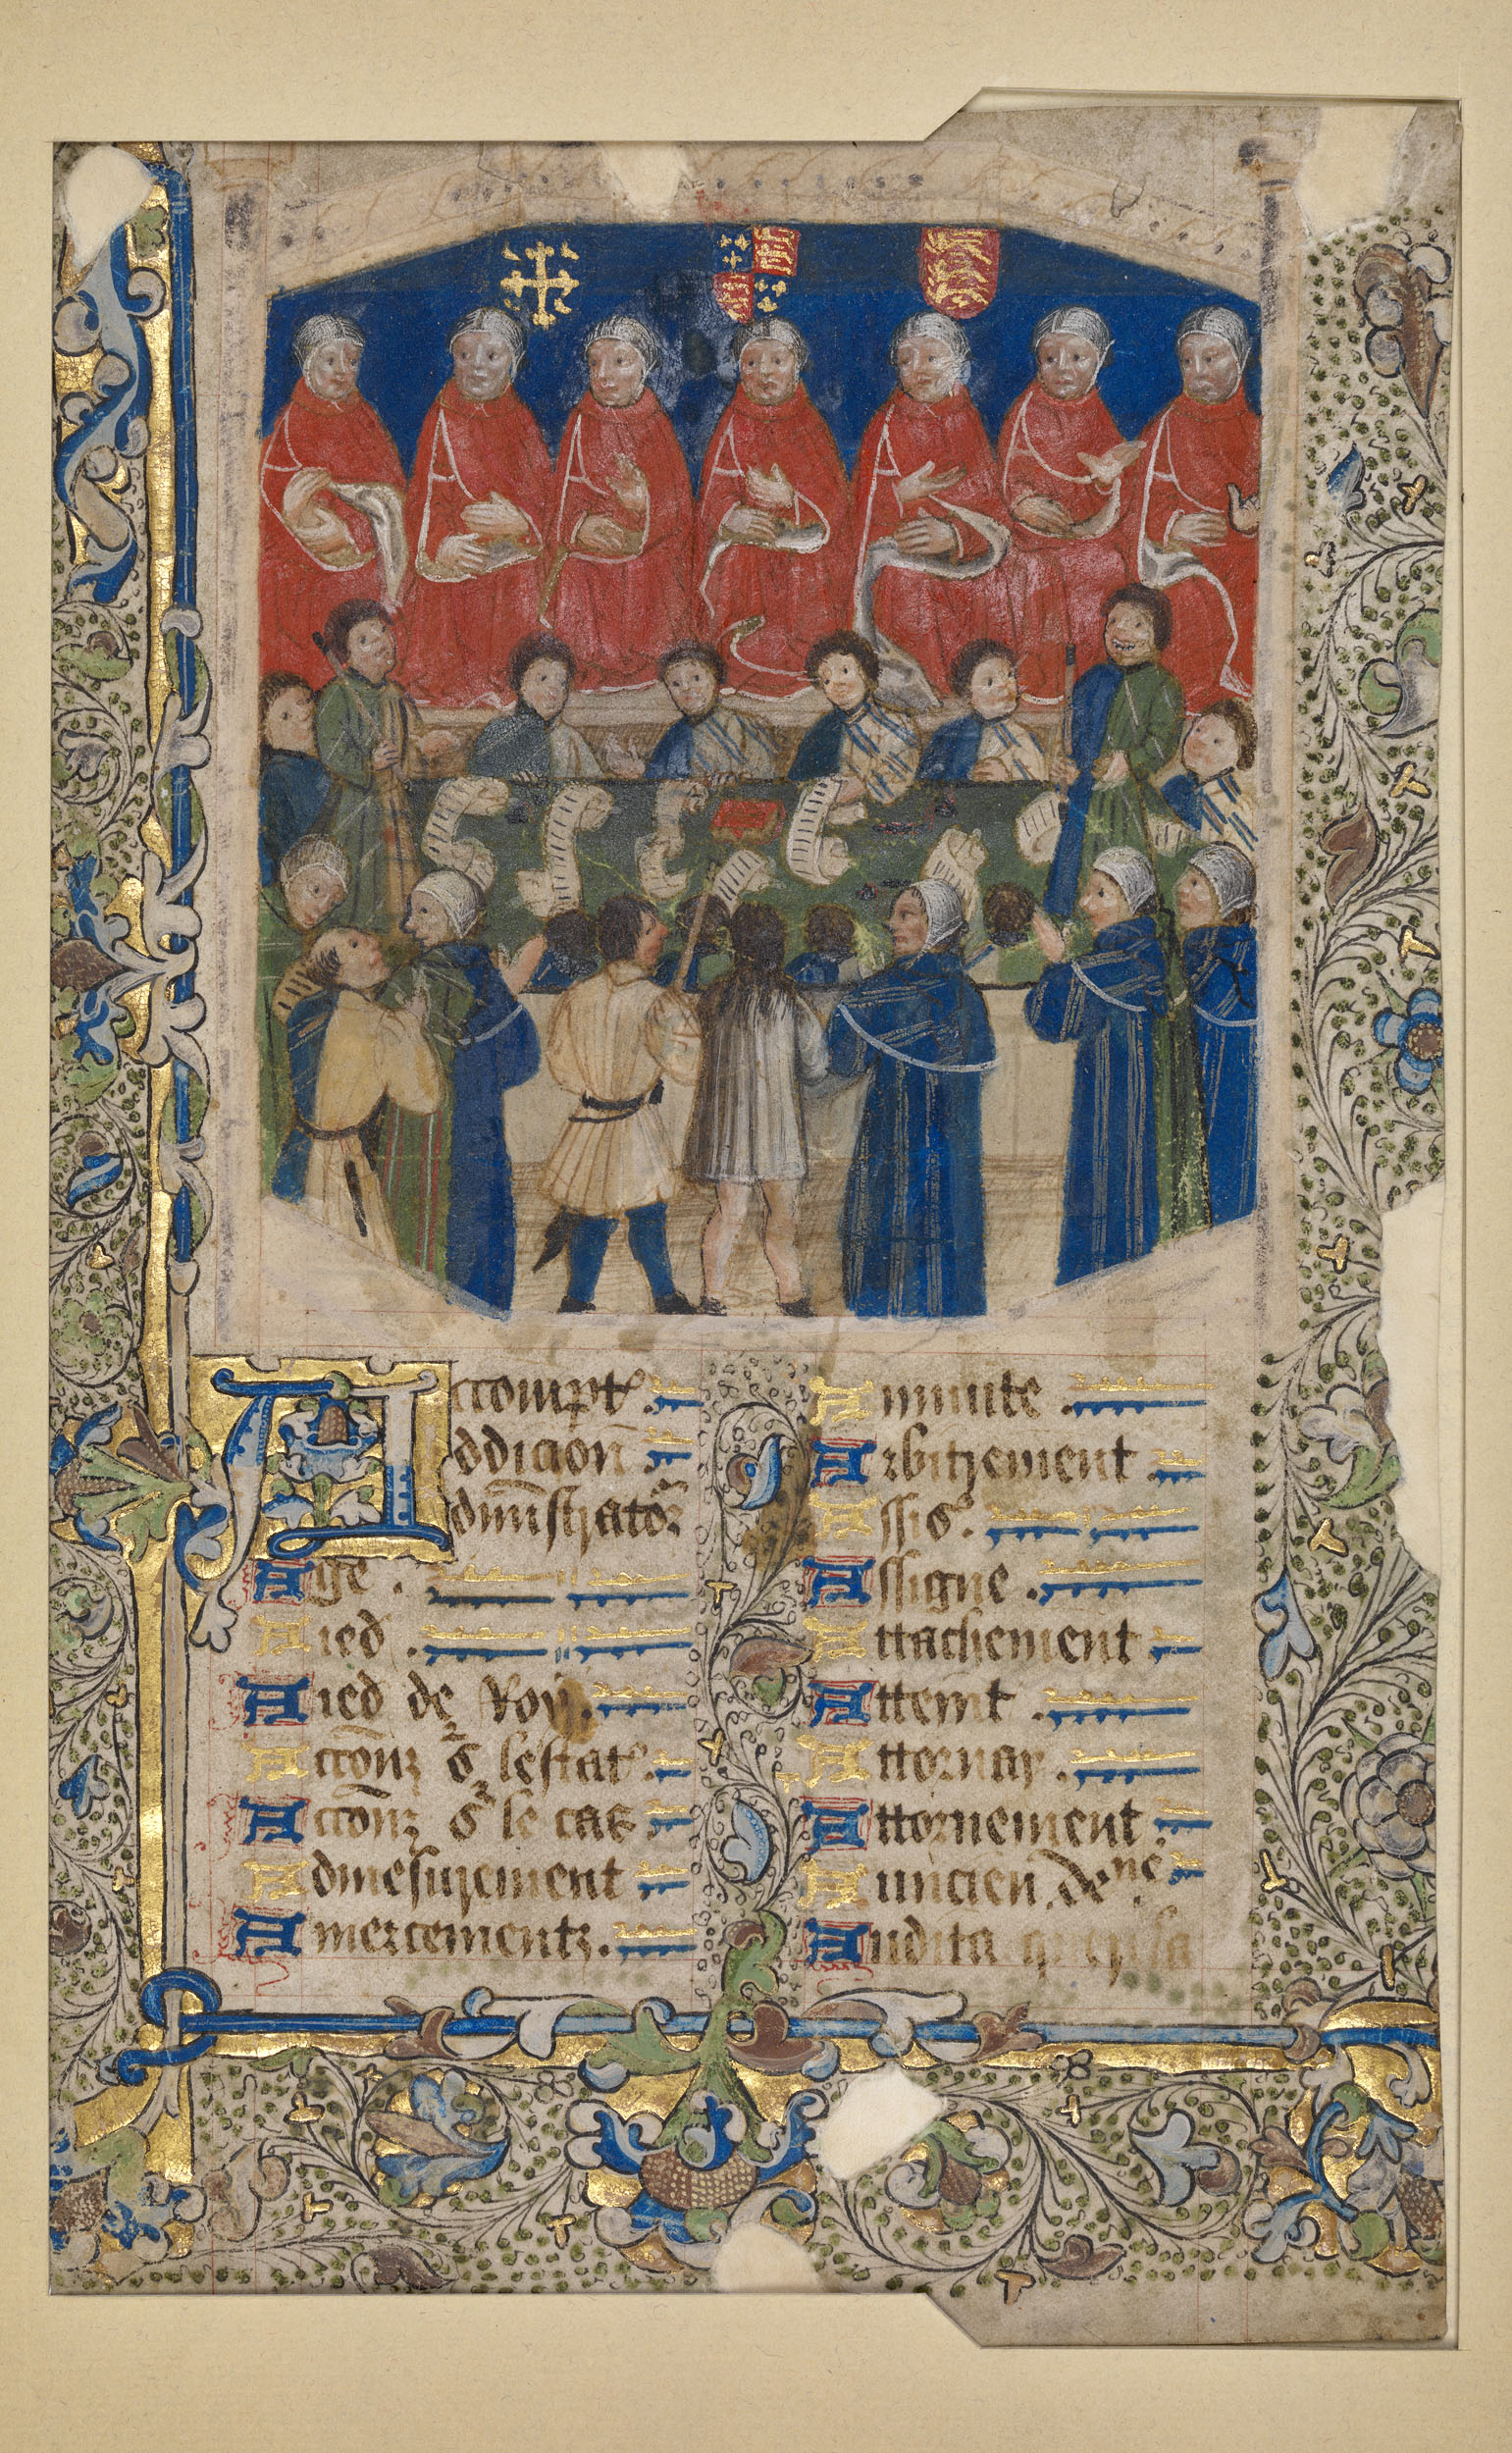 Accompt
Addicion
Administrator
Age
Aied
Aied de Roy
Accōnz sr lestat
Accōnz sr le cas
Admesurement
Amercementz
Annuite
Arbitrement
Assis
Assigne
Attachement
Atteint
Attornay
Attornement
Auncien
Audita